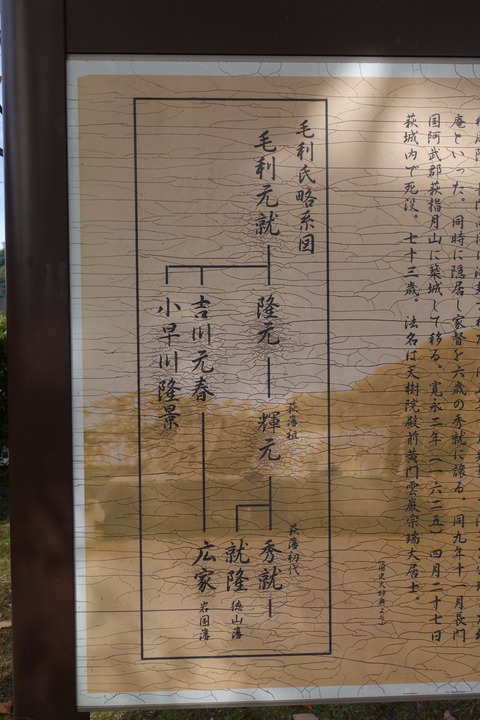 庵といった。同時に隠居し家督を六歳の秀就に譲る。同九年十一月長門
国阿武郡萩指月山に築城して移る。寛永二年(一六二五)四月二十七日
萩城内で死没。七十三歳。法名は天樹院殿前黄門雲巖宗瑞大居士。
毛利氏略系図
毛利元就
隆元
萩藩祖
輝元
萩藩初代
秀就
就隆 徳山藩
吉川元春
広家 岩国藩
小早川隆景